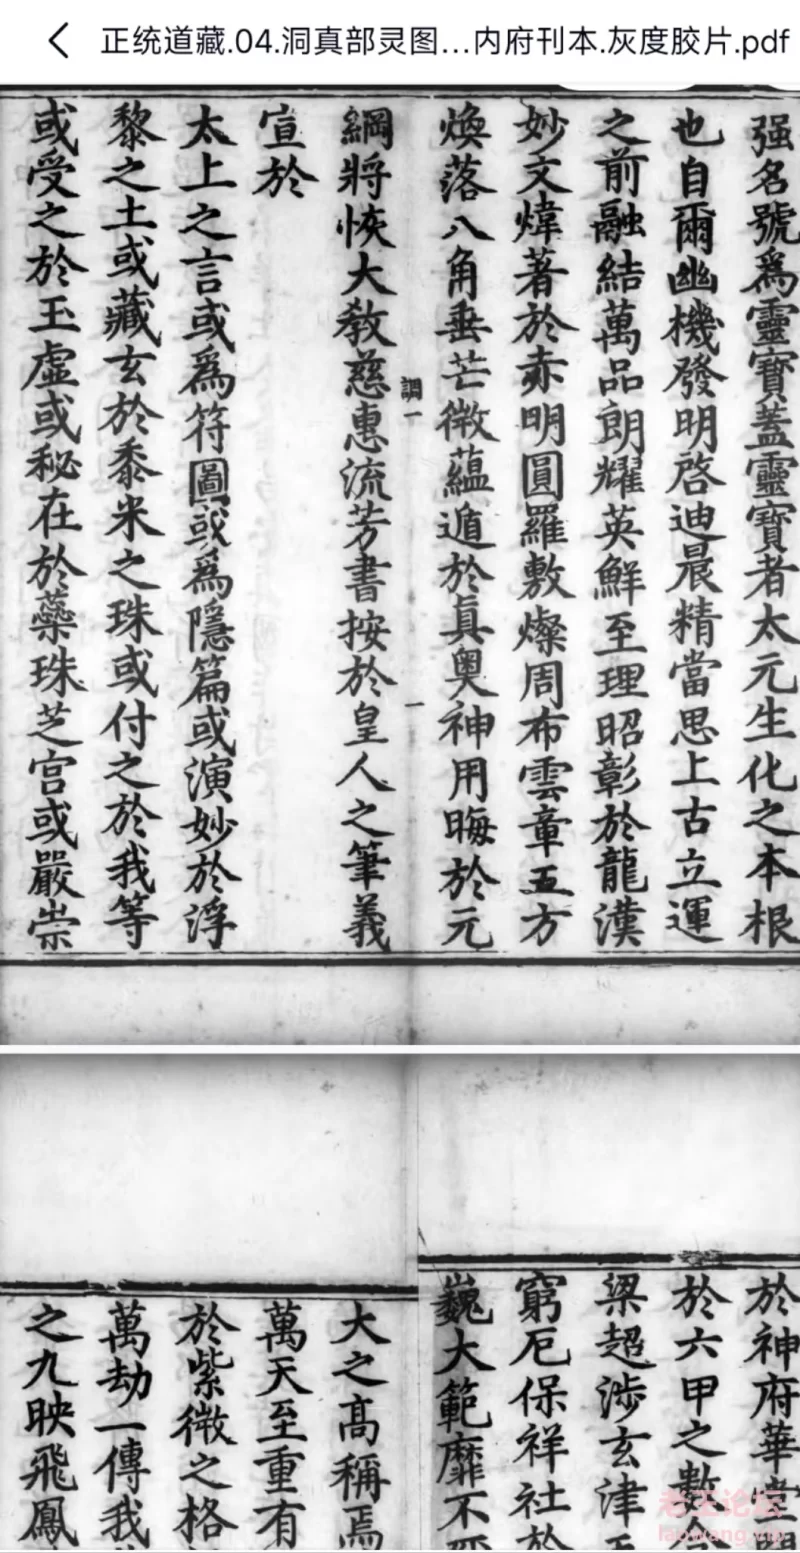 正统道藏.04.洞真部灵图...内府刊本.灰度胶片.pdf
强名號爲靈寶蓋靈寶者太元生化之本根
也自爾幽機發明啓迪晨精當思上古立運
之前融結萬品朗耀英鮮至理昭彰於龍漢
妙文煒著於赤明圓羅敷燦周布雲章五方
煥落八角垂芒微蘊遁於眞奥神用晦於元
調一
一
綱將恢大教慈惠流芳書按於皇人之筆義
宣於
太上之言或爲符圖或爲隱篇或演妙於浮
黎之土或藏玄於黍米之珠或付之於我等
或受之於玉虛或秘在於蘂珠芝宮或嚴崇
於神府華
於六甲之數
梁超涉玄津
窮厄保祥社於
巍大範靡不
大之髙稱焉
萬天至重有
於紫微之格
萬劫一傳我
之九映飛鳳
老王论坛
laowang.vip